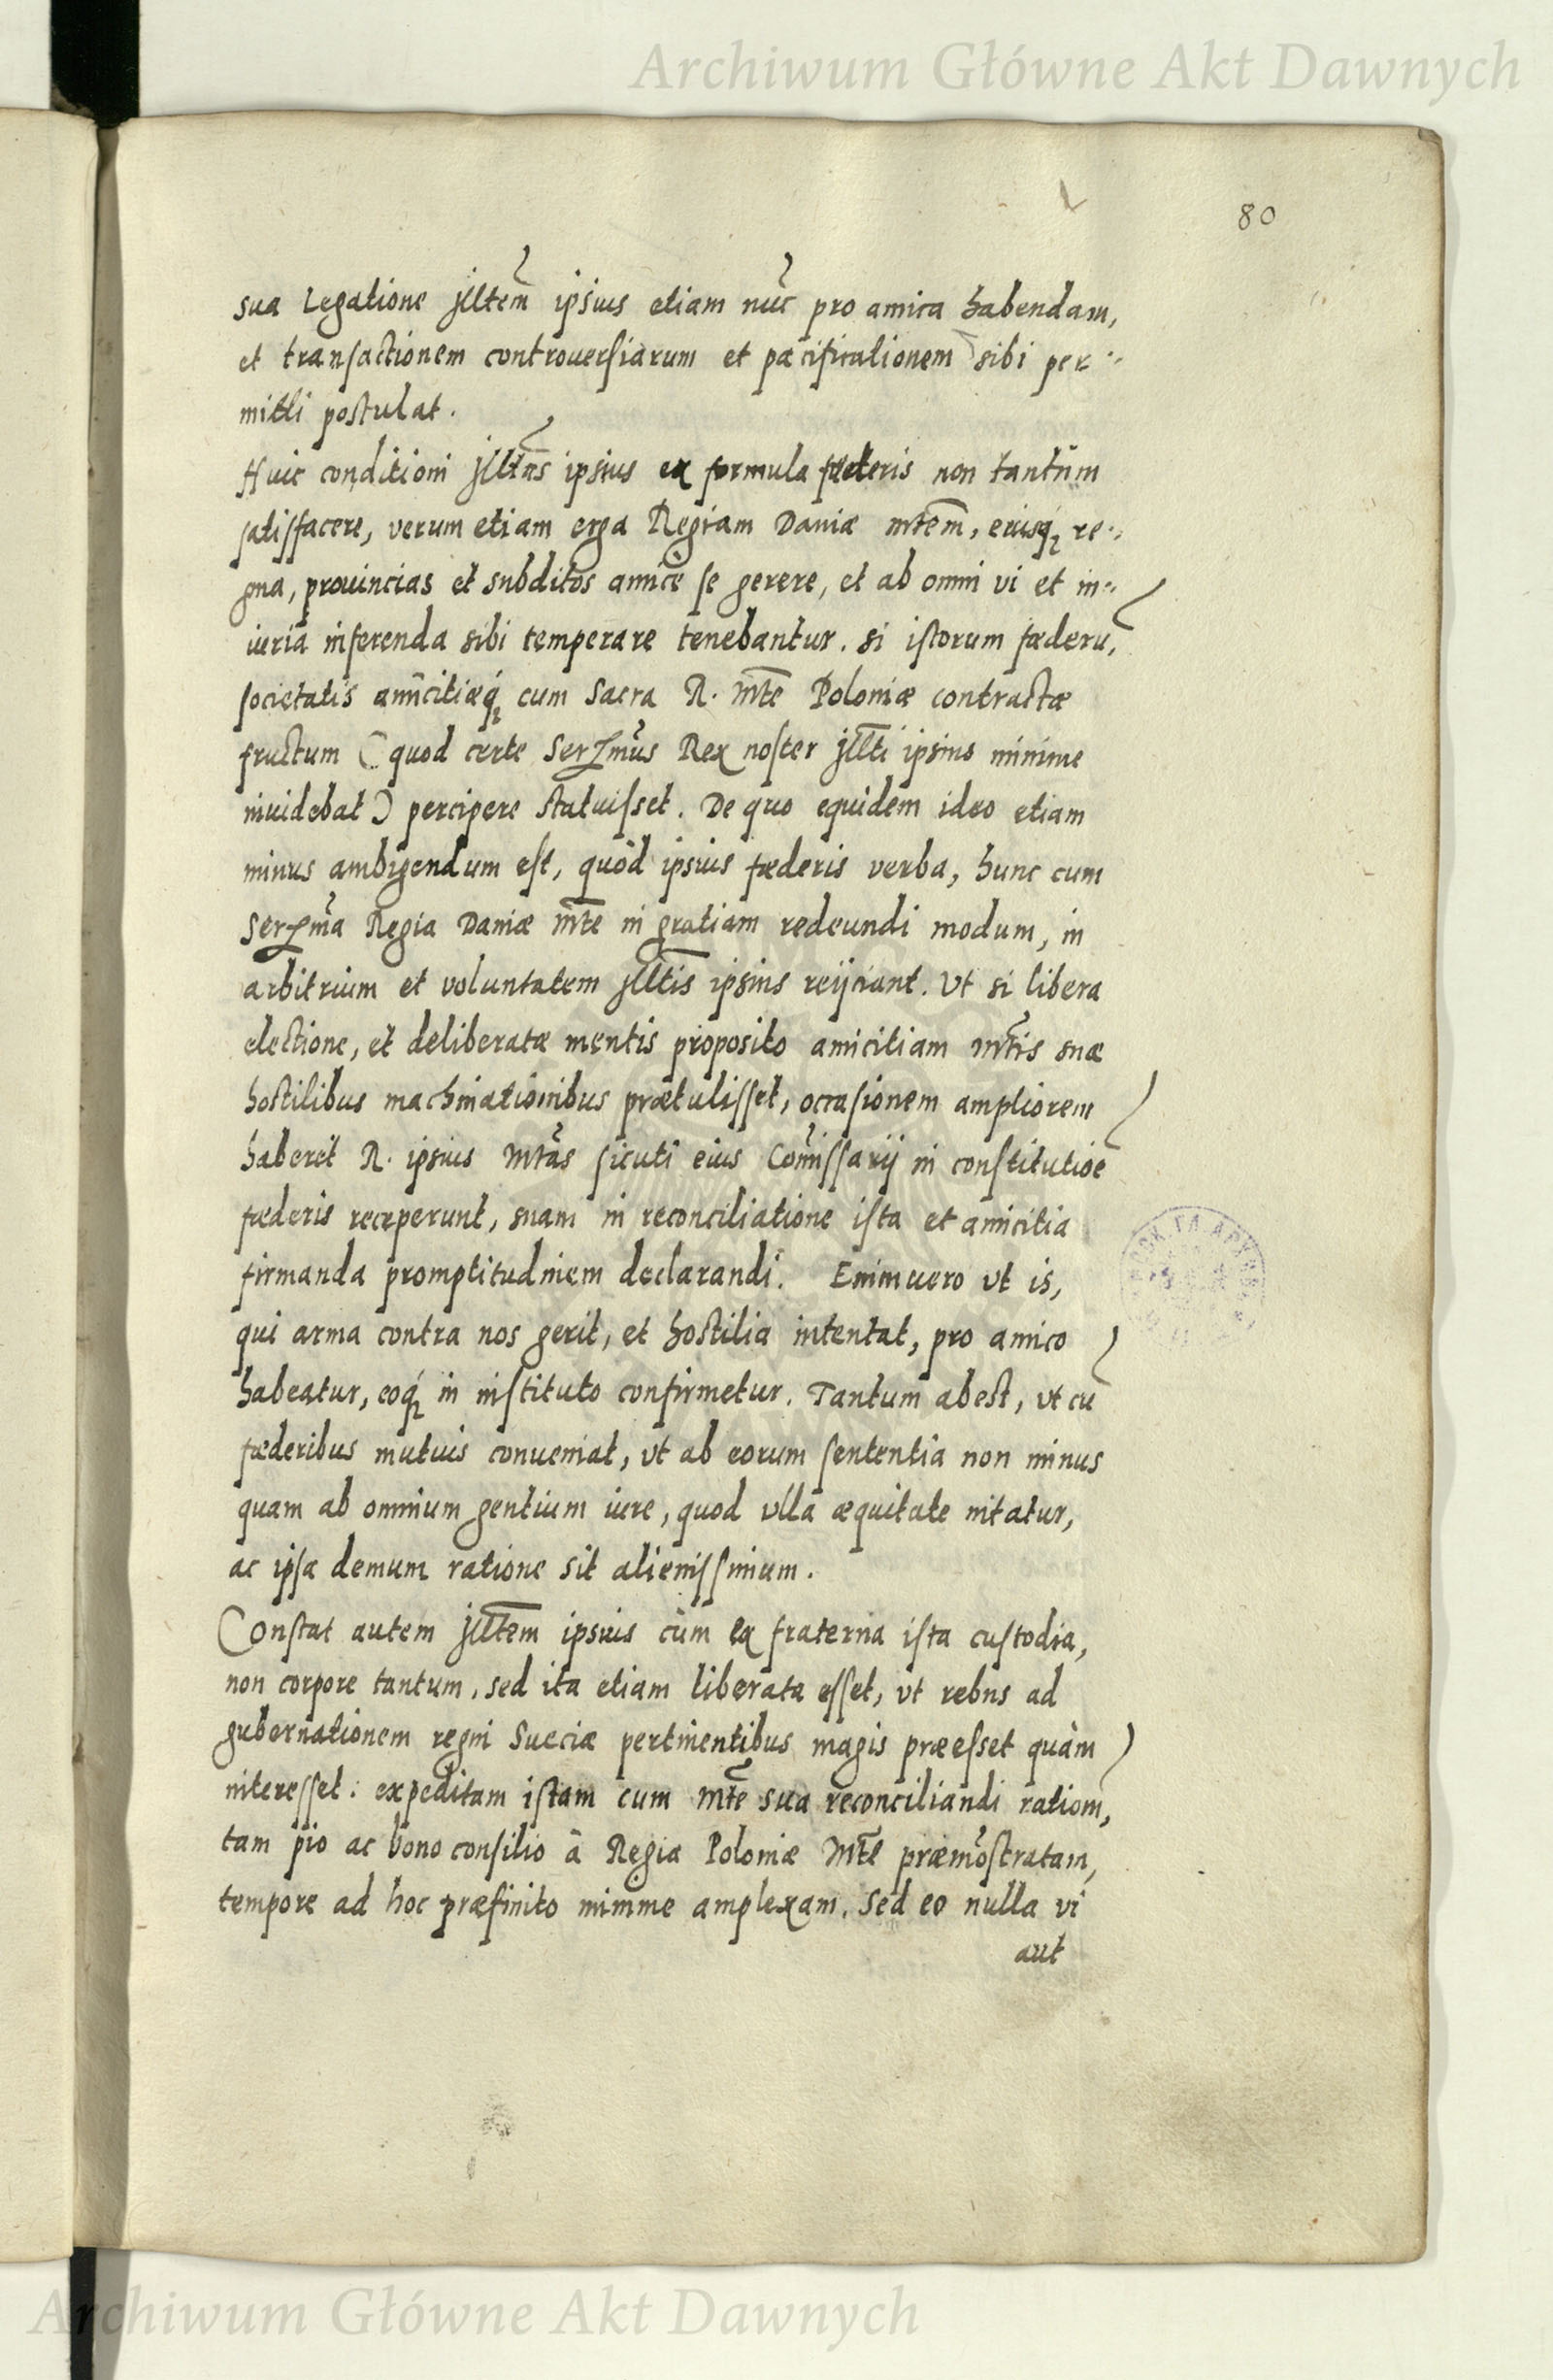 Archiwum Główne Akt Dawnych
80
sua Legatione jlltem̃ ipsius etiam nũc pro amica habendam,
et transactionem controuersiarum et pacificationem sibi per-
mitti postulat.
Huic conditioni jlltas̃ ipsius ex formula fœderis non tantùm
satisfacere, verum etiam erga Regiam Daniæ mtem̃, eiusq́ꝫ re-
gna, prouincias et subditos amicè se gerere, et ab omni vi et in-
iuria inferenda sibi temperare tenebantur. si istorum fœderũ,
societatis amicitiæq́ꝫ cum Sacra R. Mtẽ Poloniæ contractæ
fructum (quod certe Serᵐũs Rex noster jlltĩ ipsius minime
inuidebat) percipere statuisset. De quo equidem ideo etiam
minus ambigendum est, quòd ipsius fœderis verba, hunc cum
Serᵐã Regia Daniæ Mtẽ in gratiam redeundi modum, in
arbitrium et voluntatem jlltis̃ ipsius reijciant. Vt si libera
electione, et deliberatæ mentis proposito amicitiam Mtis̃ suæ
hostilibus machinationibus prætulisset, occasionem ampliorem
haberet R. ipsius Mtas̃ sicuti eius Com̃issarij in constitutioẽ
fœderis receperunt, suam in reconciliatione ista et amicitia
firmanda promptitudinem declarandi. Enimuero vt is,
qui arma contra nos gerit, et hostilia intentat, pro amico
habeatur, eoq́ꝫ in instituto confirmetur. Tantum abest, vt cũ
fœderibus mutuis conueniat, vt ab eorum sententia non minus
quam ab omnium gentium iure, quod vlla æquitate nitatur,
ac ipsa demum ratione sit alienissimum.
Constat autem jlltem̃ ipsius cùm ex fraterna ista custodia,
non corpore tantum, sed ita etiam liberata esset, vt rebus ad
gubernationem regni Sueciæ pertinentibus magis præesset quàm
interesset: expeditam istam cum Mtẽ sua reconciliandi ratioñm,
tam pio ac bono consilio â Regia Poloniæ Mtẽ præmõstratam,
tempore ad hoc præfinito minime amplexam. Sed eo nulla vi
aut
Archiwum Główne Akt Dawnych